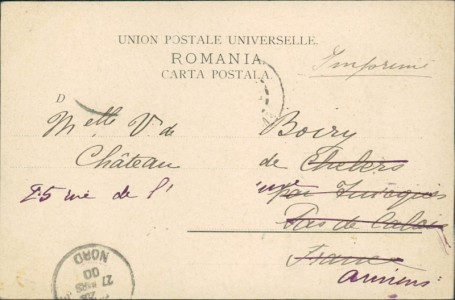 UNION POSTALE UNIVERSELLE.
ROMANIA.
CARTA POSTALA.
Imprimé
D
Melle V de Boiry
Château de Chelers
25 rue de l'
Pas de Calais
France
Amiens
NORD
27
MARS
00